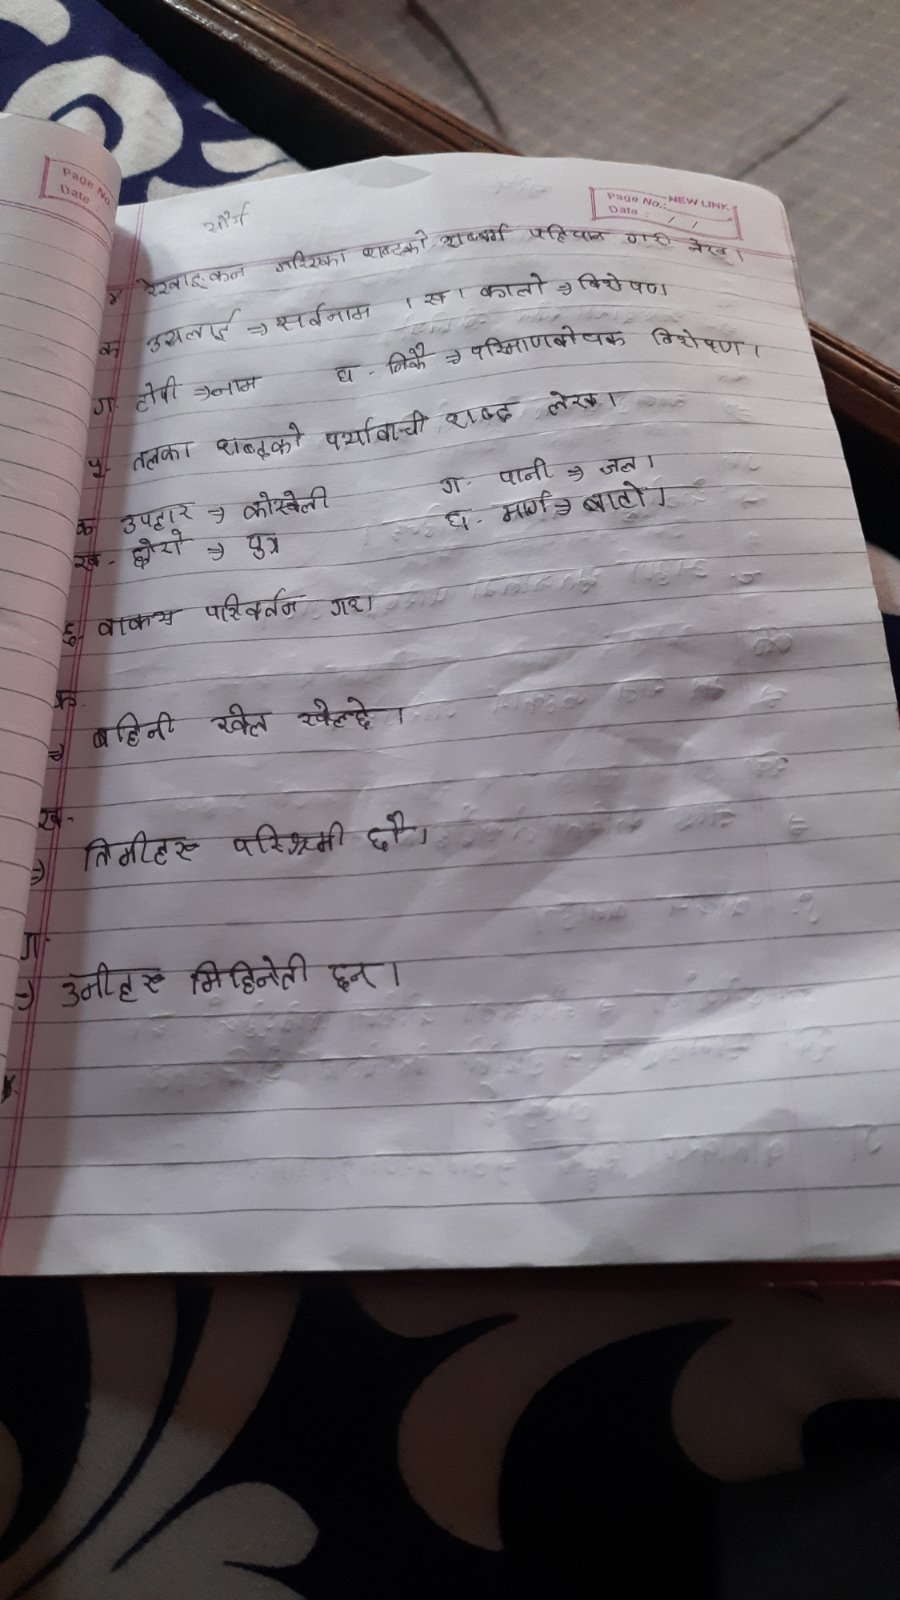 Page No.
Date
Page No.: NEW LINK
Date : / /
शौर्य
४ रेखाङ्कन गरिएका शब्दको शब्दवर्ग पहिचान गरी लेख।
क उसलाई ⇒ सर्वनाम । ख। कालो ⇒ विशेषण
ग. टोपी ⇒ नाम घ. निकै ⇒ परिमाणबोधक विशेषण।
५. तलका शब्दको पर्यावाची शब्द लेख।
क उपहार ⇒ कोसेली ग. पानी ⇒ जल।
ख. छोरो ⇒ पुत्र घ. मार्ग ⇒ बाटो।
६. वाक्य परिवर्तन गर।
क.
⇒ बहिनी खेल खेल्छे।
ख.
⇒ तिमीहरू परिश्रमी छौ।
ग.
⇒ उनीहरू मिहिनेती छन्।